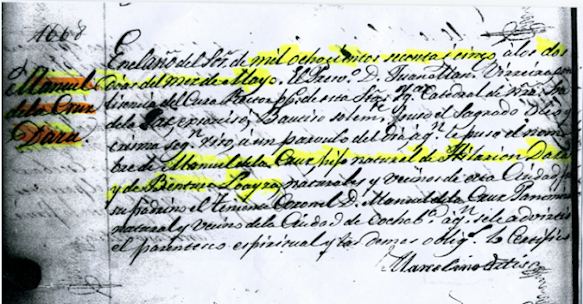 1668
Manuel
de la Cruz
Daza.
En el año del Señ.r de mil ochocientos secenta i cinco á los dos
dias del mes de Mayo. El Presv.o D. Juan
del Cura Rector de esta Catedral de
de la Paz exorciso, Bautiso solem. puso el Sagrado Oleo y
crisma seg.n rito, á un parvulo del dia á q.n le puso el nom
bre de Manuel de la Cruz, hijo natural de Hilarion Daza
y de Benture Loayza, naturales y vecinos de esta Ciudad, fue
su padrino el Teniente Coronel D. Manuel de la Cruz
natural y vecino de la Ciudad de Cochab.a á q.n se le advirtio
el parentesco espiritual y las demas oblig.s Lo Certifico
Marcelino Ortiz